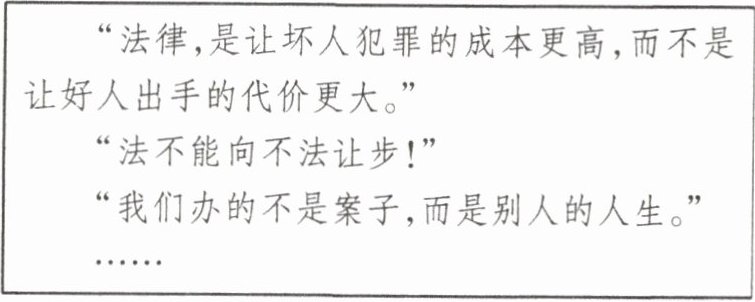 “法律,是让坏人犯罪的成本更高,而不是
让好人出手的代价更大。”
“法不能向不法让步!”
“我们办的不是案子,而是别人的人生。”
……